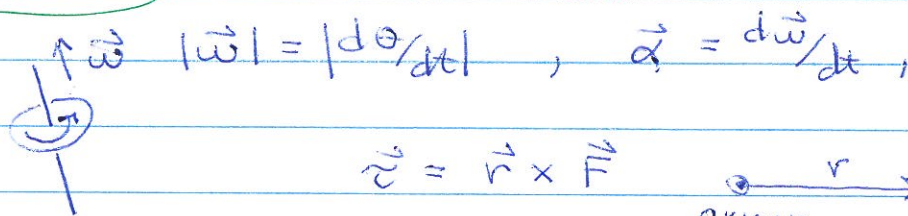 ω⃗ |ω⃗| = |dθ/dt| , α⃗ = dω⃗/dt ,
τ⃗ = r⃗ × F⃗ r